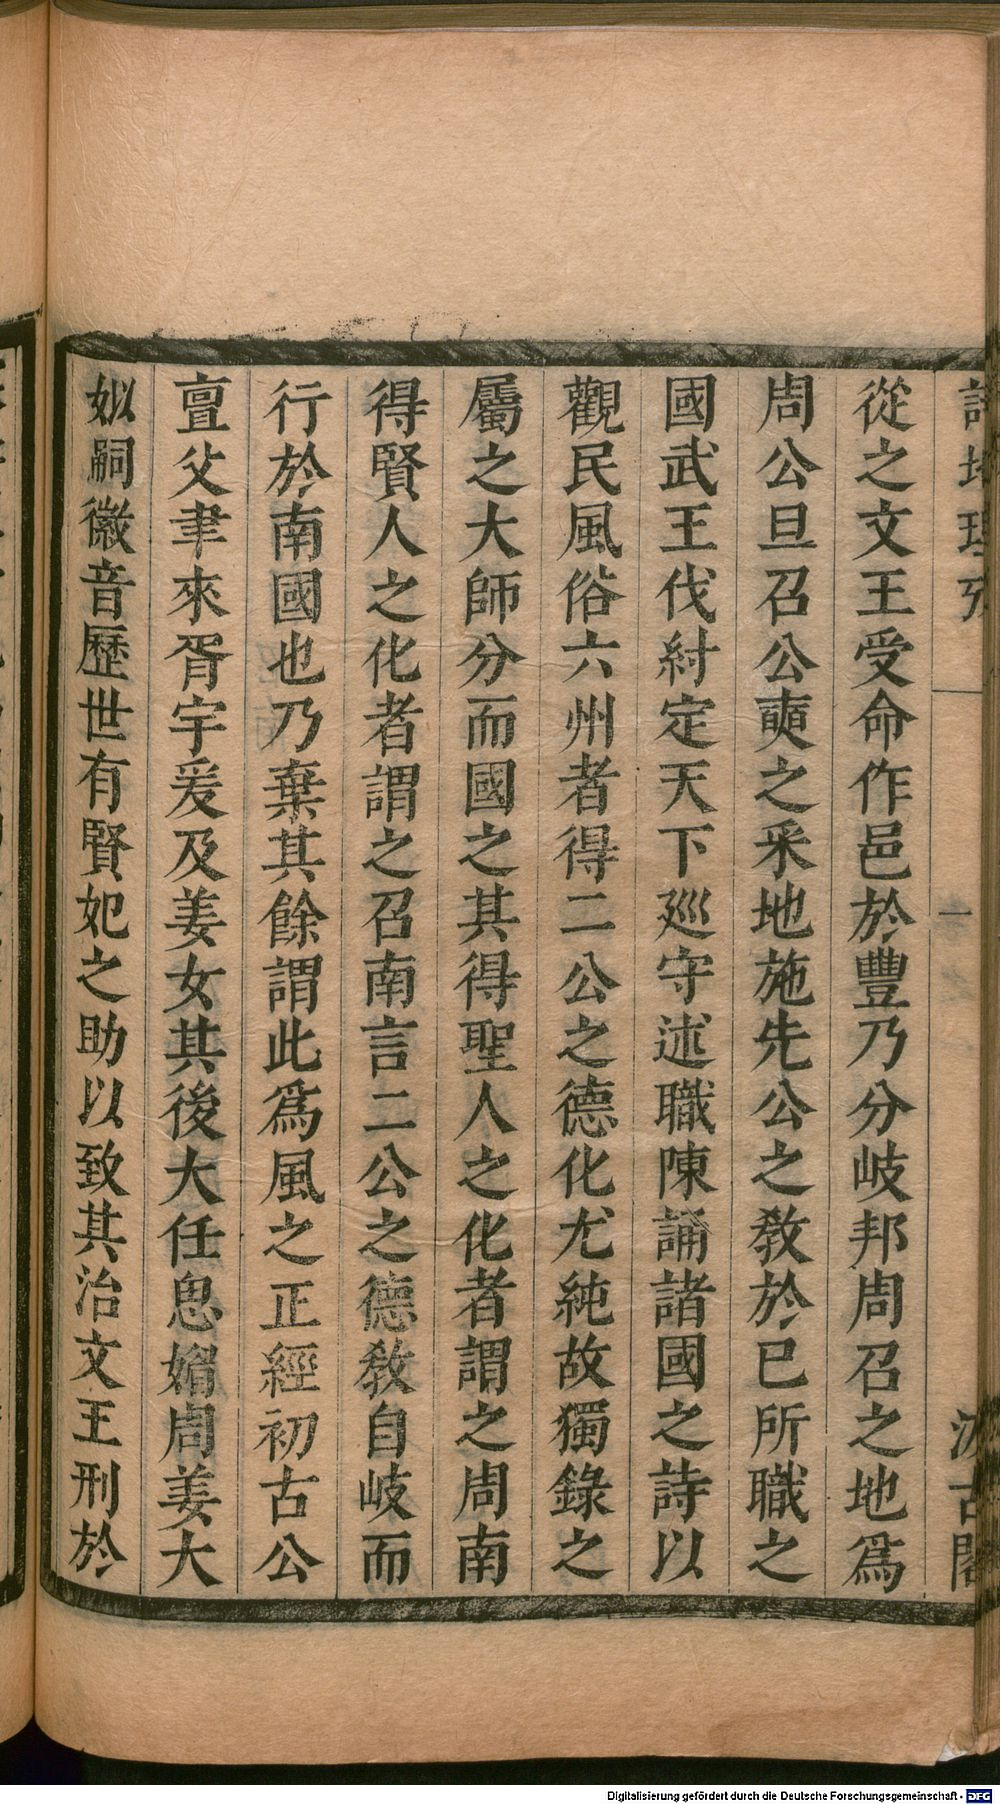 從之文王受命作邑於豐乃分岐邦周召之地爲
周公旦召公奭之采地施先公之敎於已所職之
國武王伐紂定天下廵守述職陳誦諸國之詩以
觀民風俗六州者得二公之德化尤純故獨錄之
屬之大師分而國之其得聖人之化者謂之周南
得賢人之化者謂之召南言二公之德敎自岐而
行於南國也乃棄其餘謂此爲風之正經初古公
亶父聿來胥宇爰及姜女其後大任思媚周姜大
姒嗣徽音歷世有賢妃之助以致其治文王刑於
一
古閣
Digitalisierung gefördert durch die Deutsche Forschungsgemeinschaft - DFG